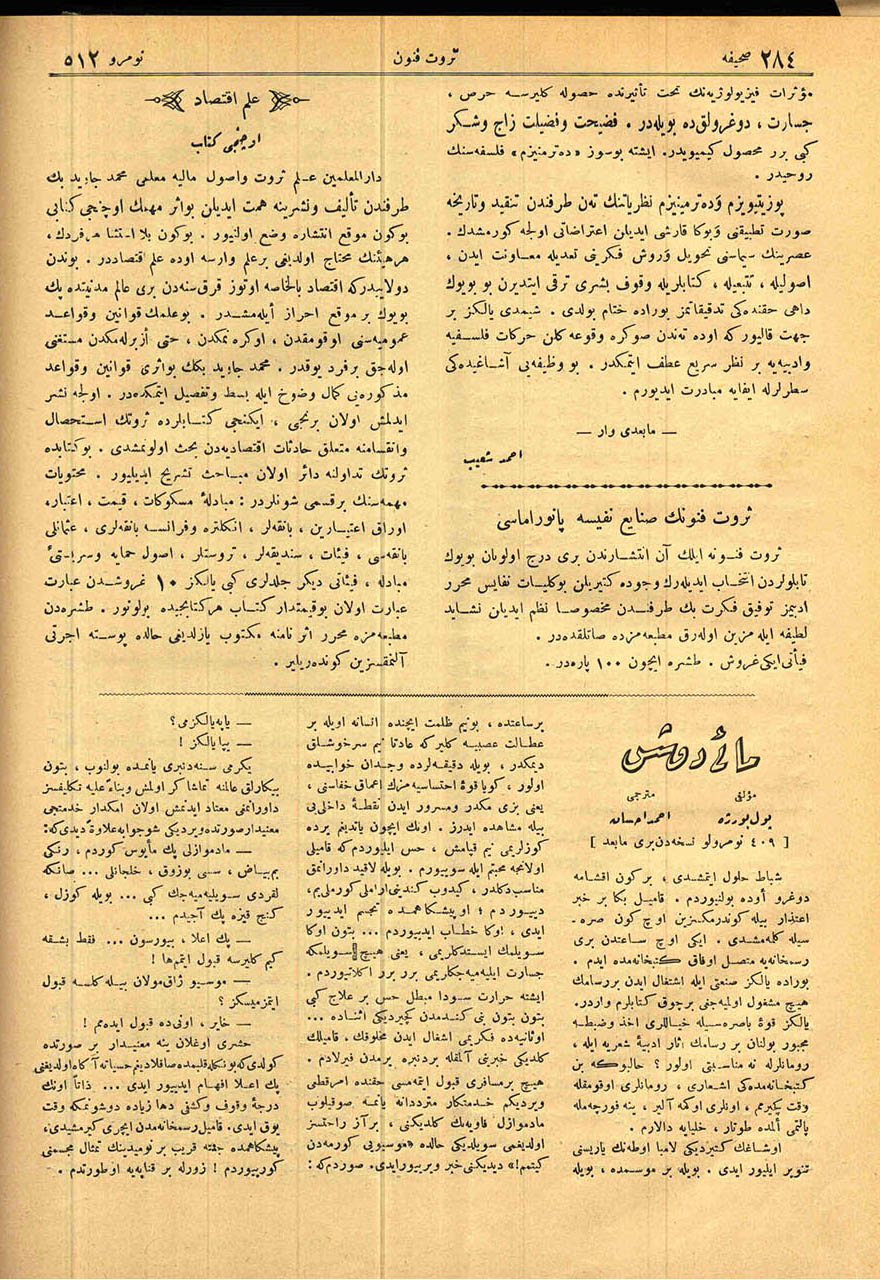 ٢٨٤ صحیفه
ثروت فنون
نومرو ٥١٢
مؤثرات فیزیولوژیه‌نك تحت تأثیرنده حصوله كلیرسه حرص ،
جسارت ، دوغرولق‌ده بویله‌در . فضیحت وفضیلت زاج وشكر
كبی برر محصول كیمویدر. ایشته بوسوز «ده‌ترمنیزم» فلسفه‌سنك
روحیدر .
پوزیتیویزم وده‌ترمینیزم نظریاتنك ته‌ن طرفندن تنقید وتاریخه
صورت تطبیقنی وبوكا قارشی ایدیلن اعتراضاتی اولجه كورمشدك .
عصرینك سیماسنی تحویل وروش فكرینی تعدیله معاونت ایدن ،
اصولیله ، تتبعیله ، كتابلریله وقوف بشری ترقی ایتدیرن بو بویوك
داهی حقنده‌كی تدقیقاتمز بوراده ختام بولدی . شیمدی یالكز بر
جهت قالیور كه اوده ته‌ندن صوكره وقوعه كلن حركات فلسفیه
وادبیه‌یه بر نظر سریع عطف ایتمكدر . بو وظیفه‌یی آشاغیده‌كی
سطرلرله ایفایه مبادرت ایدیورم .
— مابعدی وار —
احمد شعیب
ثروت فنونك صنایع نفیسه پانوراماسی
ثروت فنونه ایلك آن انتشارندن بری درج اولونان بویوك
تابلولردن انتخاب ایدیله‌رك وجوده كتیریلن بوكلیات نفایس محرر
ادیبمز توفیق فكرت بك طرفندن مخصوصا نظم ایدیلن نشاید
لطیفه ایله مزین اوله‌رق مطبعه‌مزده صاتلقده‌در .
فیأتی ایكی غروش . طشره ایچون ١٠٠ پاره‌در .
علم اقتصاد
اوچنجی كتاب
دارالمعلمین علم ثروت واصول مالیه معلمی محمد جاوید بك
طرفندن تألیف ونشرینه همت ایدیلن بواثر مهمك اوچنجی كتابی
بوكون موقع انتشاره وضع اولنیور . بوكون بلا استثنا هر فردك ،
هر هیئتك محتاج اولدیغی بر علم وارسه اوده علم اقتصاددر . بوندن
دولاییدر كه اقتصاد بالخاصه اوتوز قرق سنه‌دن بری عالم مدنیتده پك
بویوك بر موقع احراز ایله‌مشدر . بوعلمك قوانین وقواعد
عمومیه‌سنی اوقومقدن ، اوكره نمكدن ، حتی ازبرله‌مكدن مستغنی
اوله‌جق برفرد یوقدر . محمد جاوید بكك بواثری قوانین وقواعد
مذكوره‌یی كمال وضوح ایله بسط وتفصیل ایتمكده‌در . اولجه نشر
ایدلمش اولان برنجی ، ایكنجی كتابلرده ثروتك استحصال
وانقسامنه متعلق حادثات اقتصادیه‌دن بحث اولونمشدی . بوكتابده
ثروتك تداولنه دائر اولان مباحث تشریح ایدیلیور . محتویات
مهمه‌سنك برقسمی شونلردر : مبادلهٔ مسكوكات ، قیمت ، اعتبار،
اوراق اعتبارین ، بانقه‌لر ، انكلتره وفرانسه بانقه‌لری ، عثمانلی
بانقه‌سی ، فیئات ، سندیقه‌لر ، تروستلر ، اصول حمایه وسربستیٔ
مبادله ، فیئاتی دیكر جلدلری كبی یالكز ١٠ غروشدن عبارت
عبارت اولان بوقیمتدار كتاب هر كتابجیده بولونور . طشره‌دن
مطبعه‌مزه محرر اثر نامنه مكتوب یازلدیغی حالده پوسته اجرتی
آلنمقسزین كونده‌ریلیر .
مائی دوشس
مؤلفی
مترجمی
پول بورژه
احمد احسان
[ ٤٠٩ نومرولو نسخه‌دن بری مابعد ]
شباط حلول ایتمشدی ، بر كون اقشامه
دوغرو أوده بولنیوردم . قامیل بكا بر خبر
اعتذار بیله كوندرمكسزین اوچ كون صره‌-
سیله كله‌مشدی . ایكی اوچ ساعتدن بری
رسمخانه‌یه متصل اوفاق كتبخانه‌مده ایدم .
بوراده یالكز صنعتی ایله اشتغال ایدن بررسامك
هیچ مشغول اولمیه‌جنی برچوق كتابلرم واردر.
یالكز قوهٔ باصره‌سیله خیاللری اخذ وضبطه
مجبور بولنان بر رسامك آثار ادبیهٔ شعریه ایله ،
رومانلرله نه مناسبتی اولور ؟ حالبوكه بن
كتبخانه‌مده‌كی اشعاری ، رومانلری اوقومقله
وقت كچیرم ، اونلری اوكمه آلیر ، ینه فورچه‌مله
پالتمی ألمده طوتار ، خلیایه دالارم .
اوشاغك كتیردیكی لامبا اوطه‌نك یاریسنی
تنویر ایلیور ایدی . بویله بر موسمده ، بویله
برساعتده ، بونیم ظلمت ایچنده انسانه اویله بر
عطالت عصبیه كلیر كه عادتا نیم سرخوشلق
دیمكدر ، بویله دقیقه‌لرده وجدان خوابیده
اولور ، كویا قوهٔ احتساسیه‌مزك اعماق خفاسنی ،
یعنی بزی مكدر ومسرور ایدن نقطهٔ داخلی‌یی
بیله مشاهده ایدرز . اونك ایچون یاتدیغم یرده
كوزلریمی نیم قپامش ، حس ایلیوردم كه قامیلی
اولانجه محبتم ایله سویورم . بویله لاقید داورانمق
مناسب دكلدر ، كیدوب كندینی آراملی كورملی‌یم،
دییوردم ؛ او پیشكاهمده تجسم ایدییور
ایدی ، اوكا خطاب ایدییوردم ... بتون اوكا
سویلمك ایستدكلریمی ، یعنی هیچ سویلمكه
جسارت ایلیه‌میه‌جكلریمی برر برر اكلاتیوردم .
ایشته حرارت سودا مبطل حس بر علاج كبی
بتون بتون بنی كندمدن كچیردیكی اثناده ...
اوثانیه‌ده فكریمی اشغال ایدن مخلوقك ، قامیلك
كلدیكی خبرینی آلمقله بردنبره یرمدن فیرلادم .
هیچ برمسافری قبول ایتمه‌مسی حقنده امرقطعی
ویردیكم خدمتكار مترددانه یانمه صوقیلوب
مادموازل فاوریه‌ك كلدیكنی ، برآز راحتسز
اولدیغمی سویلدیكی حالده «موسیویی كورمه‌دن
كیتمم!» دیدیكنی خبر ویرییورایدی. صوردم كه :
— یاپه‌یالكزمی ؟
— یپایالكز !
یكرمی سنه‌دنبری یانمده بولنوب ، بتون
بیكارلق عالمنه تماشا كر اولمش وبناءً علیه تكلیفسز
داورانمنی معتاد ایدنمش اولان امكدار خدمتجی
معنیدار صورتده ویردیكی شوجوابه علاوةً دیدی كه:
— مادموازلی پك مأیوس كوردم ، رنكی
بم‌بیاض ، سسی بوزوق ، خلجانلی ... صانكه
لقردی سویلیه‌میه‌جك كبی ... بویله كوزل ،
كنج قیزه پك آجیدم ...
— پك اعلا ، بیورسون ... فقط بشقه
كیم كلیرسه قبول ایتمم‌ها !
— موسیو ژاق مولان بیله كلسه قبول
ایتزمیسكز ؟
— خایر ، اونی‌ده قبول ایده‌مم !
حشری اوغلان ینه معنیدار بر صورتده
كولدی كه بونكله قلبمده صاقلادیغم حسیاته آكاه اولدیغنی
پك اعلا افهام ایدییور ایدی ... ذاتاً اونك
درجهٔ وقوف وكشفنی دها زیاده دوشونمكه وقت
یوق ایدی. قامیل رسمخانه‌مدن ایچری كیرمشیدی،
پیشكاهمده جنته قریب بر نومیدینك تمثال مجسمنی
كورییوردم ! زورله بر قناپه‌یه اوطورتدم .